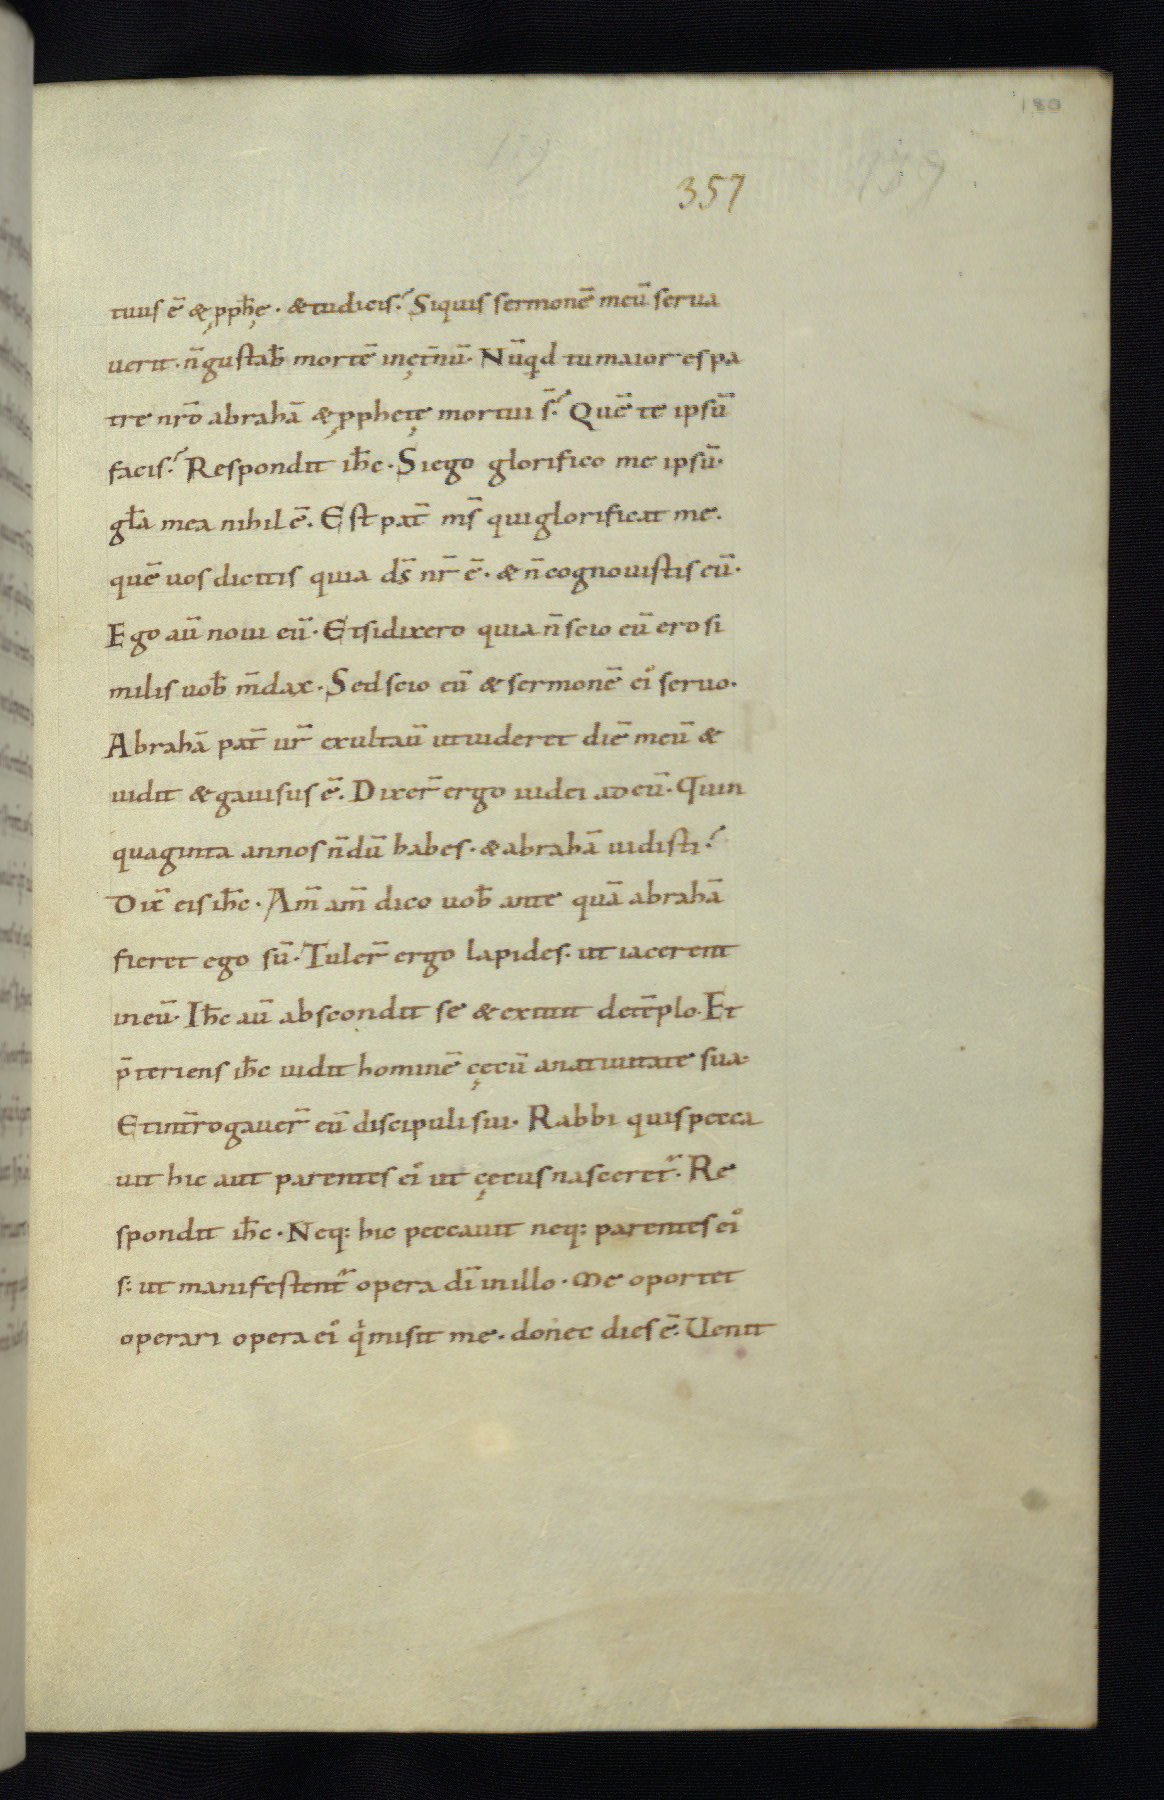 180
179
179
357
tuus ē & ꝓph̄ę · & tu dicis? Siquis sermonē meū serua
uerit · n̄ gustab̄ mortē in ęt̄nū · Nūqd tu maior es pa
tre nr̄o abrahā & ꝓphetę mortui s̄? Quē te ipsū
facis? Respondit ih̄c · Si ego glorifico me ipsū ·
gl̄a mea nihil ē. Est pat̄ ms̄ qui glorificat me.
quē uos dicitis quia ds̄ nr̄ ē · & n̄ cognouistis eū ·
Ego aū noui eū · Et si dixero quia n̄ scio eū ero si
milis uob̄ m̄dax · Sed scio eū & sermonē ei᾿ seruo ·
Abrahā pat̄ ur̄ exultauī ut uideret diē meū &
uidit & gauisus ē. Dixer̄ ergo iudei ad eū · Quin
quaginta annos n̄dū habes · & abrahā uidisti?
Dix̄ eis ih̄c · Am̄ am̄ dico uob̄ ante quā abrahā
fieret ego sū · Tuler̄ ergo lapides · ut iacerent
in eū · Ih̄c aū abscondit se & exiuit de tēplo · Et
p̄teriens ih̄c uidit hominē cęcū a natiuitate sua ·
Et int̄rogauer̄ eū discipuli sui · Rabbi quis pecca
uit hic aut parentes ei᾿ ut cęcus nasceret᷑ · Re
spondit ih̄c · Neq: hic peccauit neq: parentes ei᾿
s: ut manifestent᷑ opera dī in illo · Me oportet
operari opera ei᾿ qͥ misit me · donec dies ē · Uenit